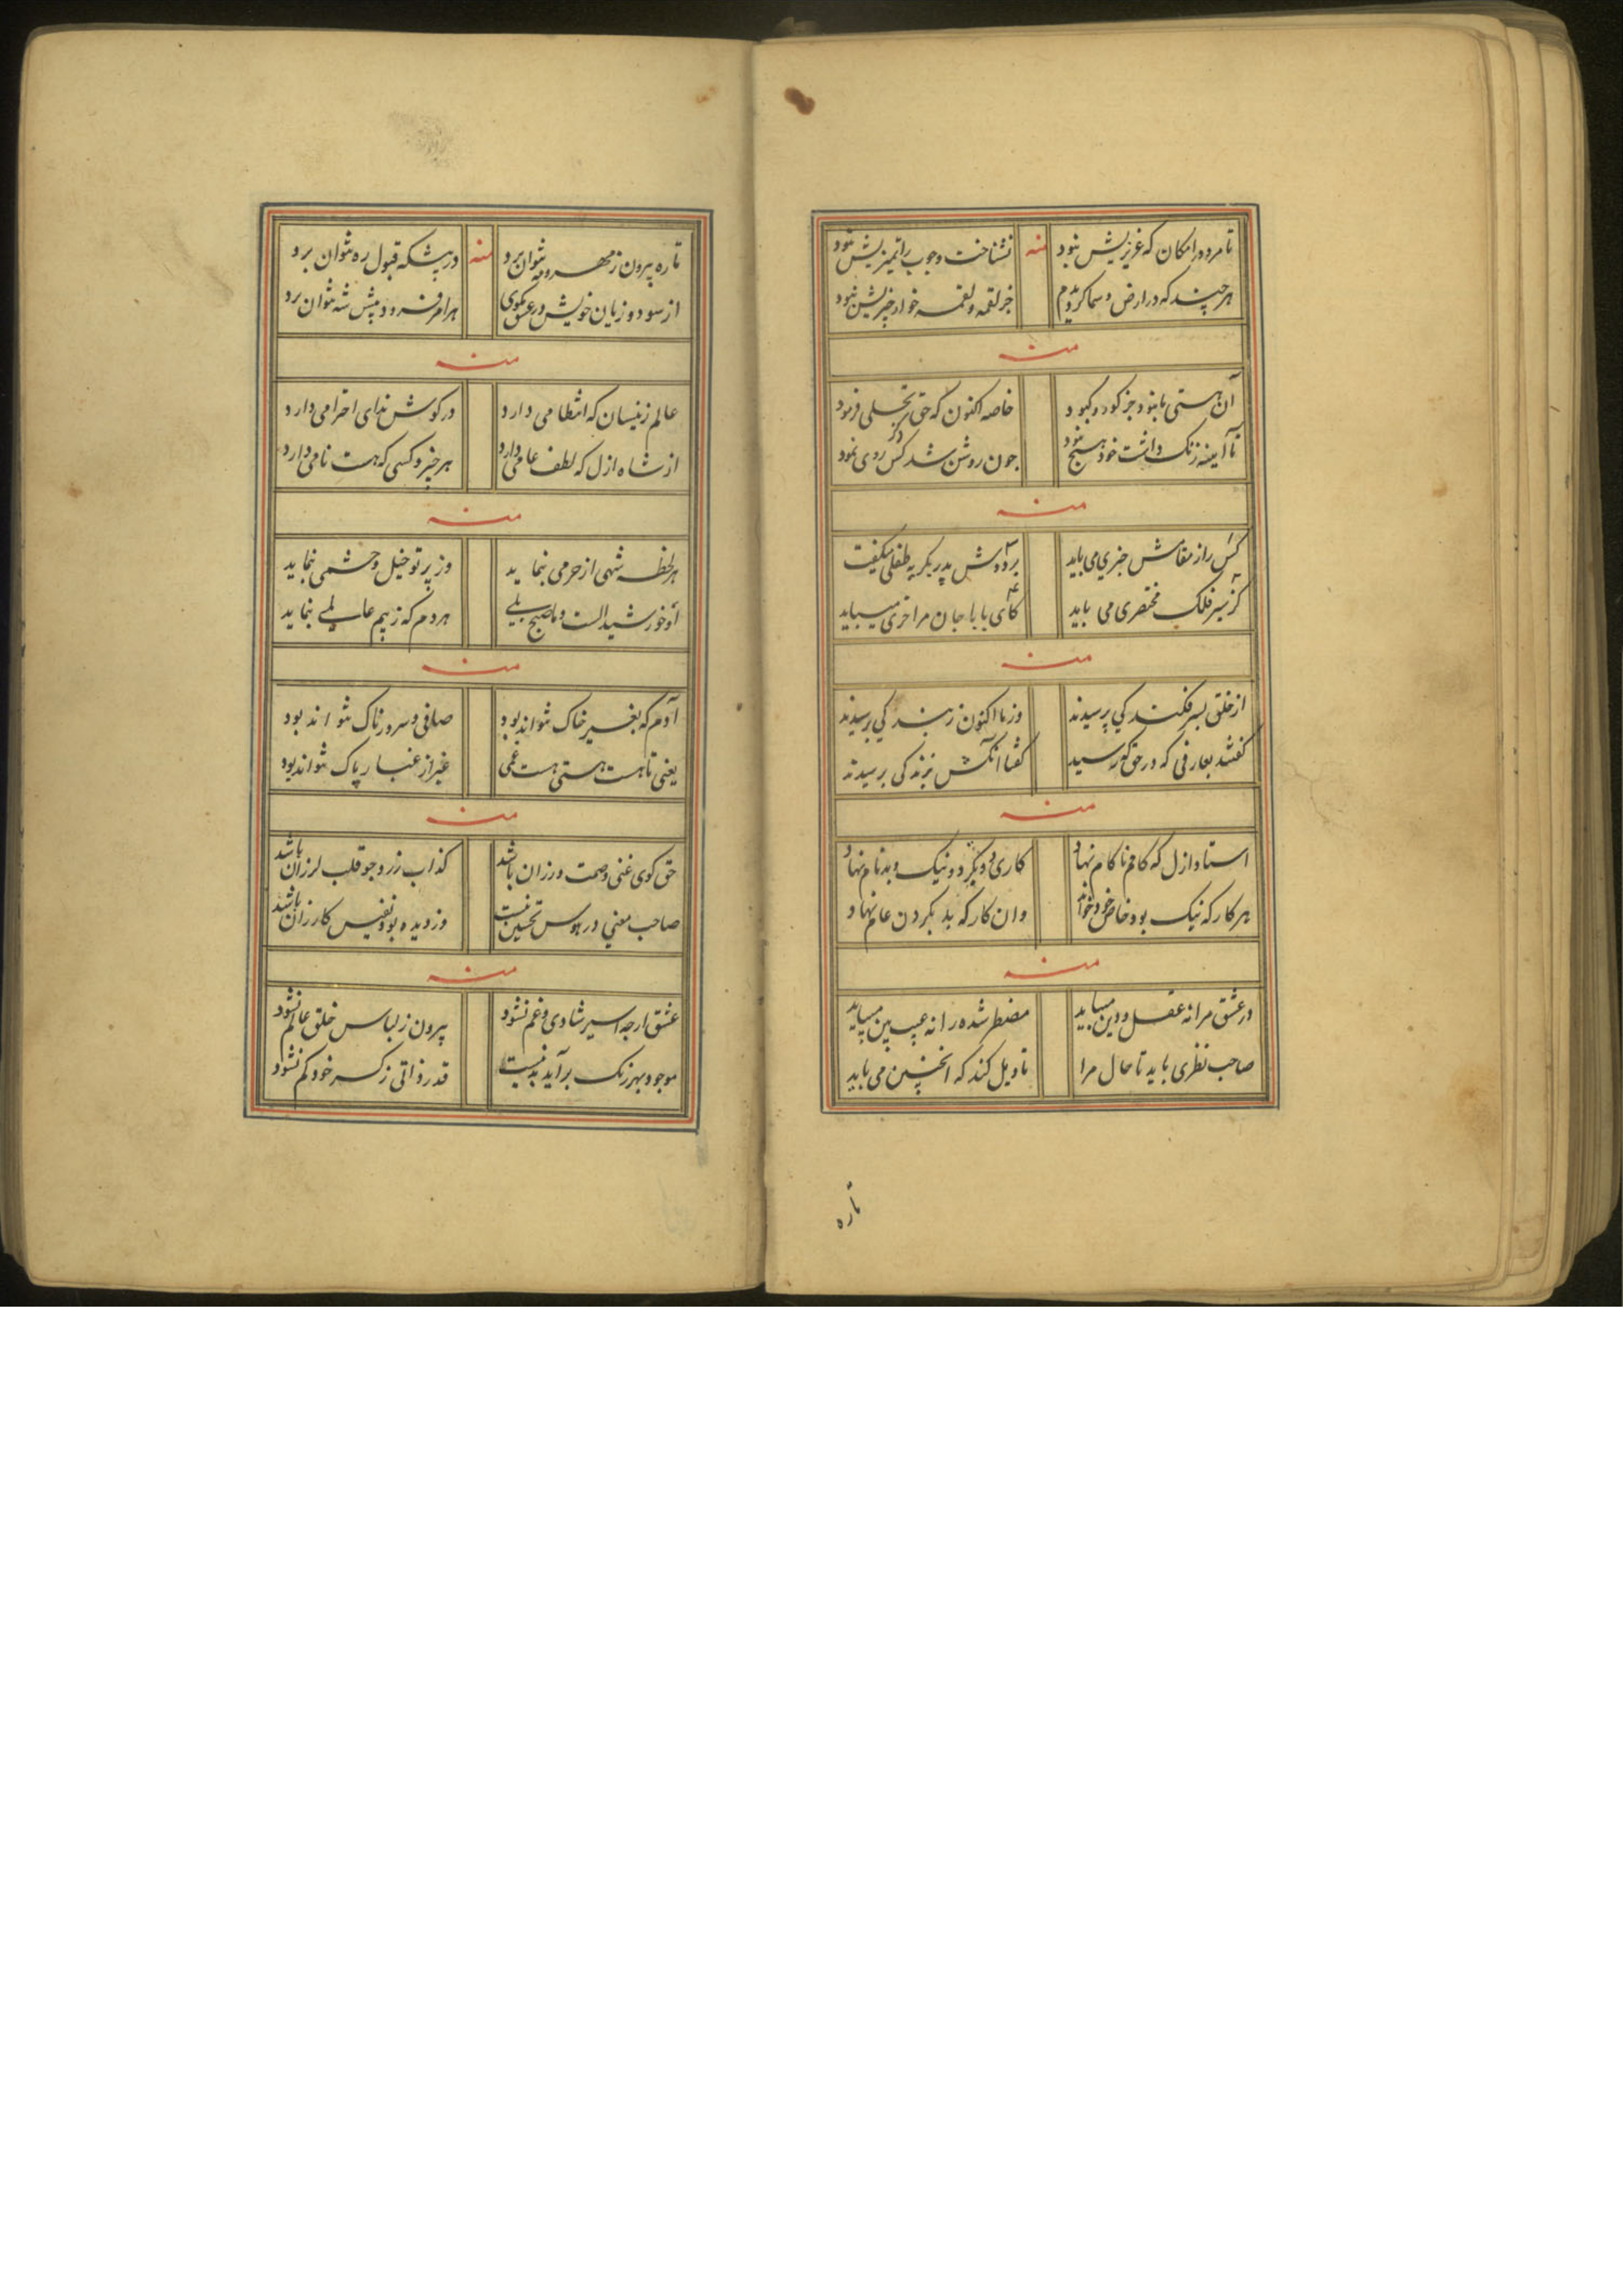 تا مرد در امکان که عزیزیش نبود نشناخت وجوب را تمیزیش نبود
منه
هرچند که در ارض و سما کردیدم جز لقمه و لقمه خوار چیزیش نبود
منه
آن هستی ما نبود جز کور و کبود خاصه اکنون که حق تجلی فرمود
تا آیینه زنک داشت خود هیچ نبود چون روشن شد کس دگر روی نمود
منه
کس را ز مقامش خبری می باید بر دوش پدر بکریه طفلی میکفت
کز سیر فلک مختصری می باید کای بابا جان مرا خری میباید
منه
از خلق بسر فکندکی پرسیدند وز ما اکنون زبندکی پرسیدند
کفتند بعارفی که در حق که رسید کفتا آنکش بزندکی پرسیدند
منه
استاد ازل که کام و ناکام نهاد کاری دو بکرد و نیک و بد نام نهاد
هر کار که نیک بود خاص خود خواند وان کار که بد بکردن عام نهاد
منه
در عشق مرا نه عقل و دین میباید مضطر شده را نه عیب بین میباید
صاحب نظری باید تا حال مرا تاویل کند که اینچنین می باید
تا ره
تا ره بیرون ز مهر و مه نتوان برد در پیشکه قبول ره نتوان برد
منه
از سود و زیان خویش در عشق مکوی هر امر فرو د پیش شه نتوان برد
منه
عالم زینسان که انتظامی دارد در کوش ندای احترامی دارد
از شاه ازل که لطف عامی دارد هر چیز و کسی که هست نامی دارد
منه
هر لحظه شهی از حرمی بنماید وز پرتو خیل و حشمی بنماید
او خورشید الست و ما صبح بلی هر دم که زنیم عالمی بنماید
منه
آدم که بغیر خاک نتواند بود صافی و سرورناک نتواند بود
یعنی تا هست هستی هست غمی غیر از غبار پاک نتواند بود
منه
حق کوی غنی و صمت ورزان باشد کذاب زر و جو قلب لرزان باشد
صاحب معنی در هوس تحسین نیست دزدیده بود نفیس کارزان باشد
منه
عشق ارچه اسیر شادی و غم نشود بیرون ز لباس خلق عالم نشود
موجود بهر رنک برآید بد نیست قدر ذاتی ز کسر خود کم نشود